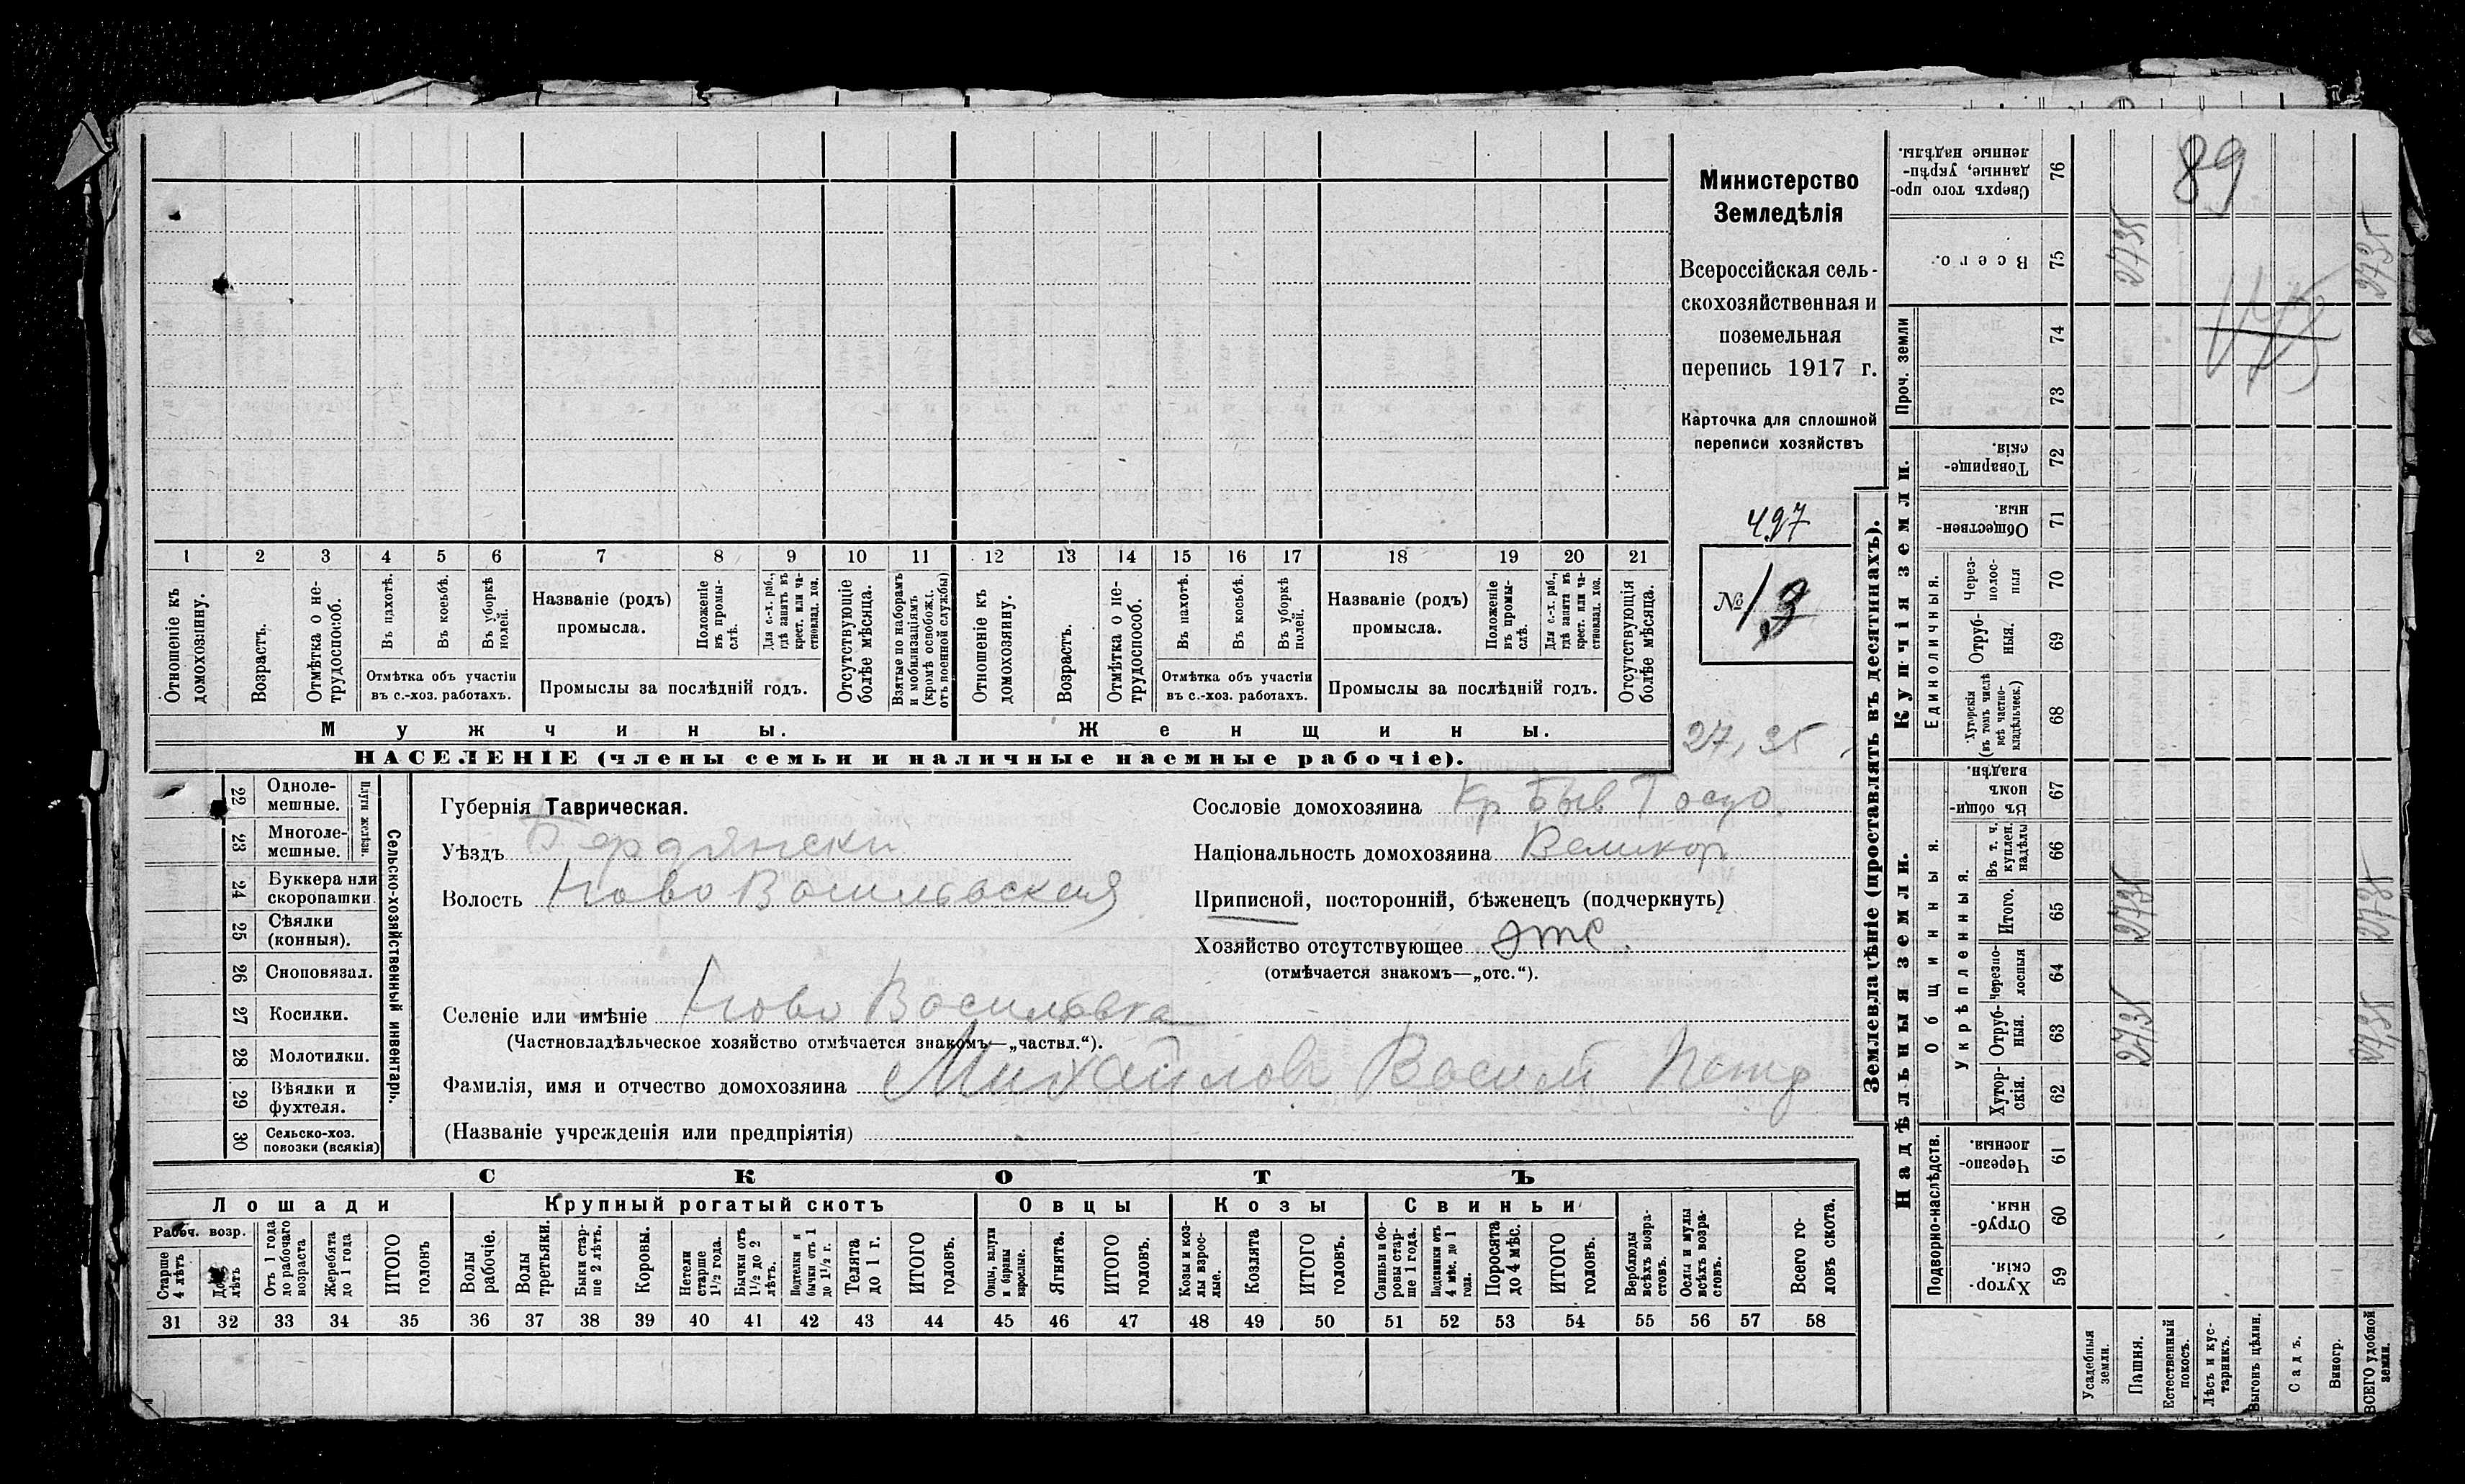 Министерство
Земледѣлія
Всероссійская сель-
скохозяйственная и
поземельная
перепись 1917 г.
Карточка для сплошной
переписи хозяйствъ
497
№ 13
27,35
1 2 3 4 5 6 7 8 9 10 11 12 13 14 15 16 17 18 19 20 21
Отношеніе къ домохозяину.
Возрастъ.
Отмѣтка о не-трудоспособ.
Въ пахотѣ.
Въ косьбѣ.
Въ уборкѣ полей.
Отмѣтка объ участіи
въ с.-хоз. работахъ.
Названіе (родъ)
промысла.
Положеніе въ промы-слѣ.
Для с.-х. раб., гдѣ занятъ въ крест. или ча-стновлад. хоз.
Промыслы за послѣдній годъ.
Отсутствующіе болѣе мѣсяца.
Взятые по наборамъ и мобилизаціямъ (кромѣ освобожд. отъ военной службы)
Отношеніе къ домохозяину.
Возрастъ.
Отмѣтка о не-трудоспособ.
Въ пахотѣ.
Въ косьбѣ.
Въ уборкѣ полей.
Отмѣтка объ участіи
въ с.-хоз. работахъ.
Названіе (родъ)
промысла.
Положеніе въ промы-слѣ.
Для с.-х. раб., гдѣ занята въ крест. или ча-стновлад. хоз.
Промыслы за послѣдній годъ.
Отсутствующія болѣе мѣсяца.
Мужчины.
Женщины.
НАСЕЛЕНІЕ (члены семьи и наличные наемные рабочіе).
22 Одноле-мешные.
23 Многоле-мешные.
Плуги желѣзн.
24 Буккера или скоропашки
25 Сѣялки (конныя).
26 Сноповязал.
27 Косилки.
28 Молотилки.
29 Вѣялки и фухтеля.
30 Сельско-хоз. повозки (всякія)
Сельско-хозяйственный инвентарь.
Губернія Таврическая.
Уѣздъ Бердянски
Волость Ново Васильевская
Сословіе домохозяина Кр Быв Госуд
Національность домохозяина Великор
Приписной, посторонній, бѣженецъ (подчеркнуть)
Хозяйство отсутствующее отс.
(отмѣчается знакомъ—„отс.“).
Селеніе или имѣніе Ново Васильевка
(Частновладѣльческое хозяйство отмѣчается знакомъ—„частвл.“).
Фамилія, имя и отчество домохозяина Михайлов Васил Петр
(Названіе учрежденія или предпріятія)
СКОТЪ
Лошади
Крупный рогатый скотъ
Овцы
Козы
Свиньи
Рабоч. возр.
Старше 4 лѣтъ
До 4 лѣтъ
Отъ 1 года до рабочаго возраста
Жеребята до 1 года
ИТОГО головъ
Волы рабочіе.
Волы третьяки.
Быки стар-ше 2 лѣтъ.
Коровы.
Нетели старше 1½ года.
Бычки отъ 1½ до 2 лѣтъ.
Подтелки и бычки отъ 1 до 1½ г.
Телята до 1 г.
ИТОГО головъ.
Овцы, валухи и бараны взрослые.
Ягнята.
ИТОГО головъ.
Козы и коз-лы взрос-лые.
Козлята
ИТОГО головъ.
Свиньи и бо-ровы стар-ше 1 года.
Подсвинки отъ 4 мѣс. до 1 года.
Поросята до 4 мѣс.
ИТОГО головъ.
Верблюды всѣхъ возра-стовъ.
Ослы и мулы всѣхъ возра-стовъ.
Всего го-ловъ скота.
31 32 33 34 35 36 37 38 39 40 41 42 43 44 45 46 47 48 49 50 51 52 53 54 55 56 57 58
Землевладѣніе (проставлять въ десятинахъ).
Надѣльныя земли.
Купчія земли.
Проч. земли
Подворно-наслѣдств.
Общинныя.
Укрѣпленныя.
Единоличныя.
59 Хутор-скія.
60 Отруб-ныя.
61 Черезпо-лосныя.
62 Хутор-скія.
63 Отруб-ныя.
64 Черезпо-лосныя
65 Итого.
66 Въ т. ч. куплен. надѣлы
67 Въ общин-номъ владѣн.
68 Хуторскія (въ томъ числѣ всѣ частно-владѣльческ.)
69 Отруб-ныя.
70 Через-полос-ныя
71 Обществен-ныя.
72 Товарище-скія.
73
74
75 Всего.
76 Сверхъ того про-данные, укрѣп-ленные надѣлы.
89
2735 2735
2735 2735
2735 2735
Усадебныя земли.
Пашня.
Естественный покосъ.
Лѣсъ и кус-тарникъ.
Выгонъ цѣлин.
Садъ.
Виногр.
ВСЕГО удобной земли.